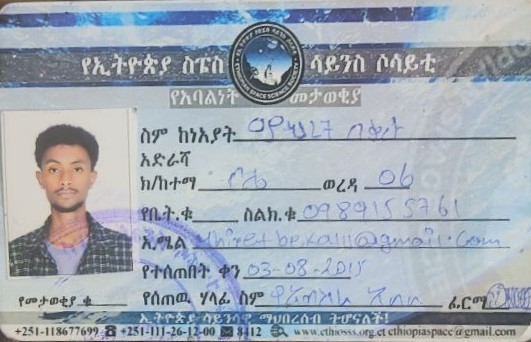 የኢትዮጵያ ስፔስ ሳይንስ ሶሳይቲ
የአባልነት መታወቂያ
ስም ከነአያት
አድራሻ
ክ/ከተማ የካ ወረዳ 06
የቤት.ቁ ስልክ.ቁ 0989155761
ኢ.ሜል @gmail.com
የተሰጠበት ቀን 03-08-2015
የመታወቂያ ቁ የሰጠዉ ሃላፊ ስም ፊርማ
ኢትዮጵያ ሳይንሳዊ ማህበረሰብ ትሆናለች!
+251-118677699 +251-111-26-12-00 8412 www.ethiosss.org.et ethiopiaspace@gmail.com